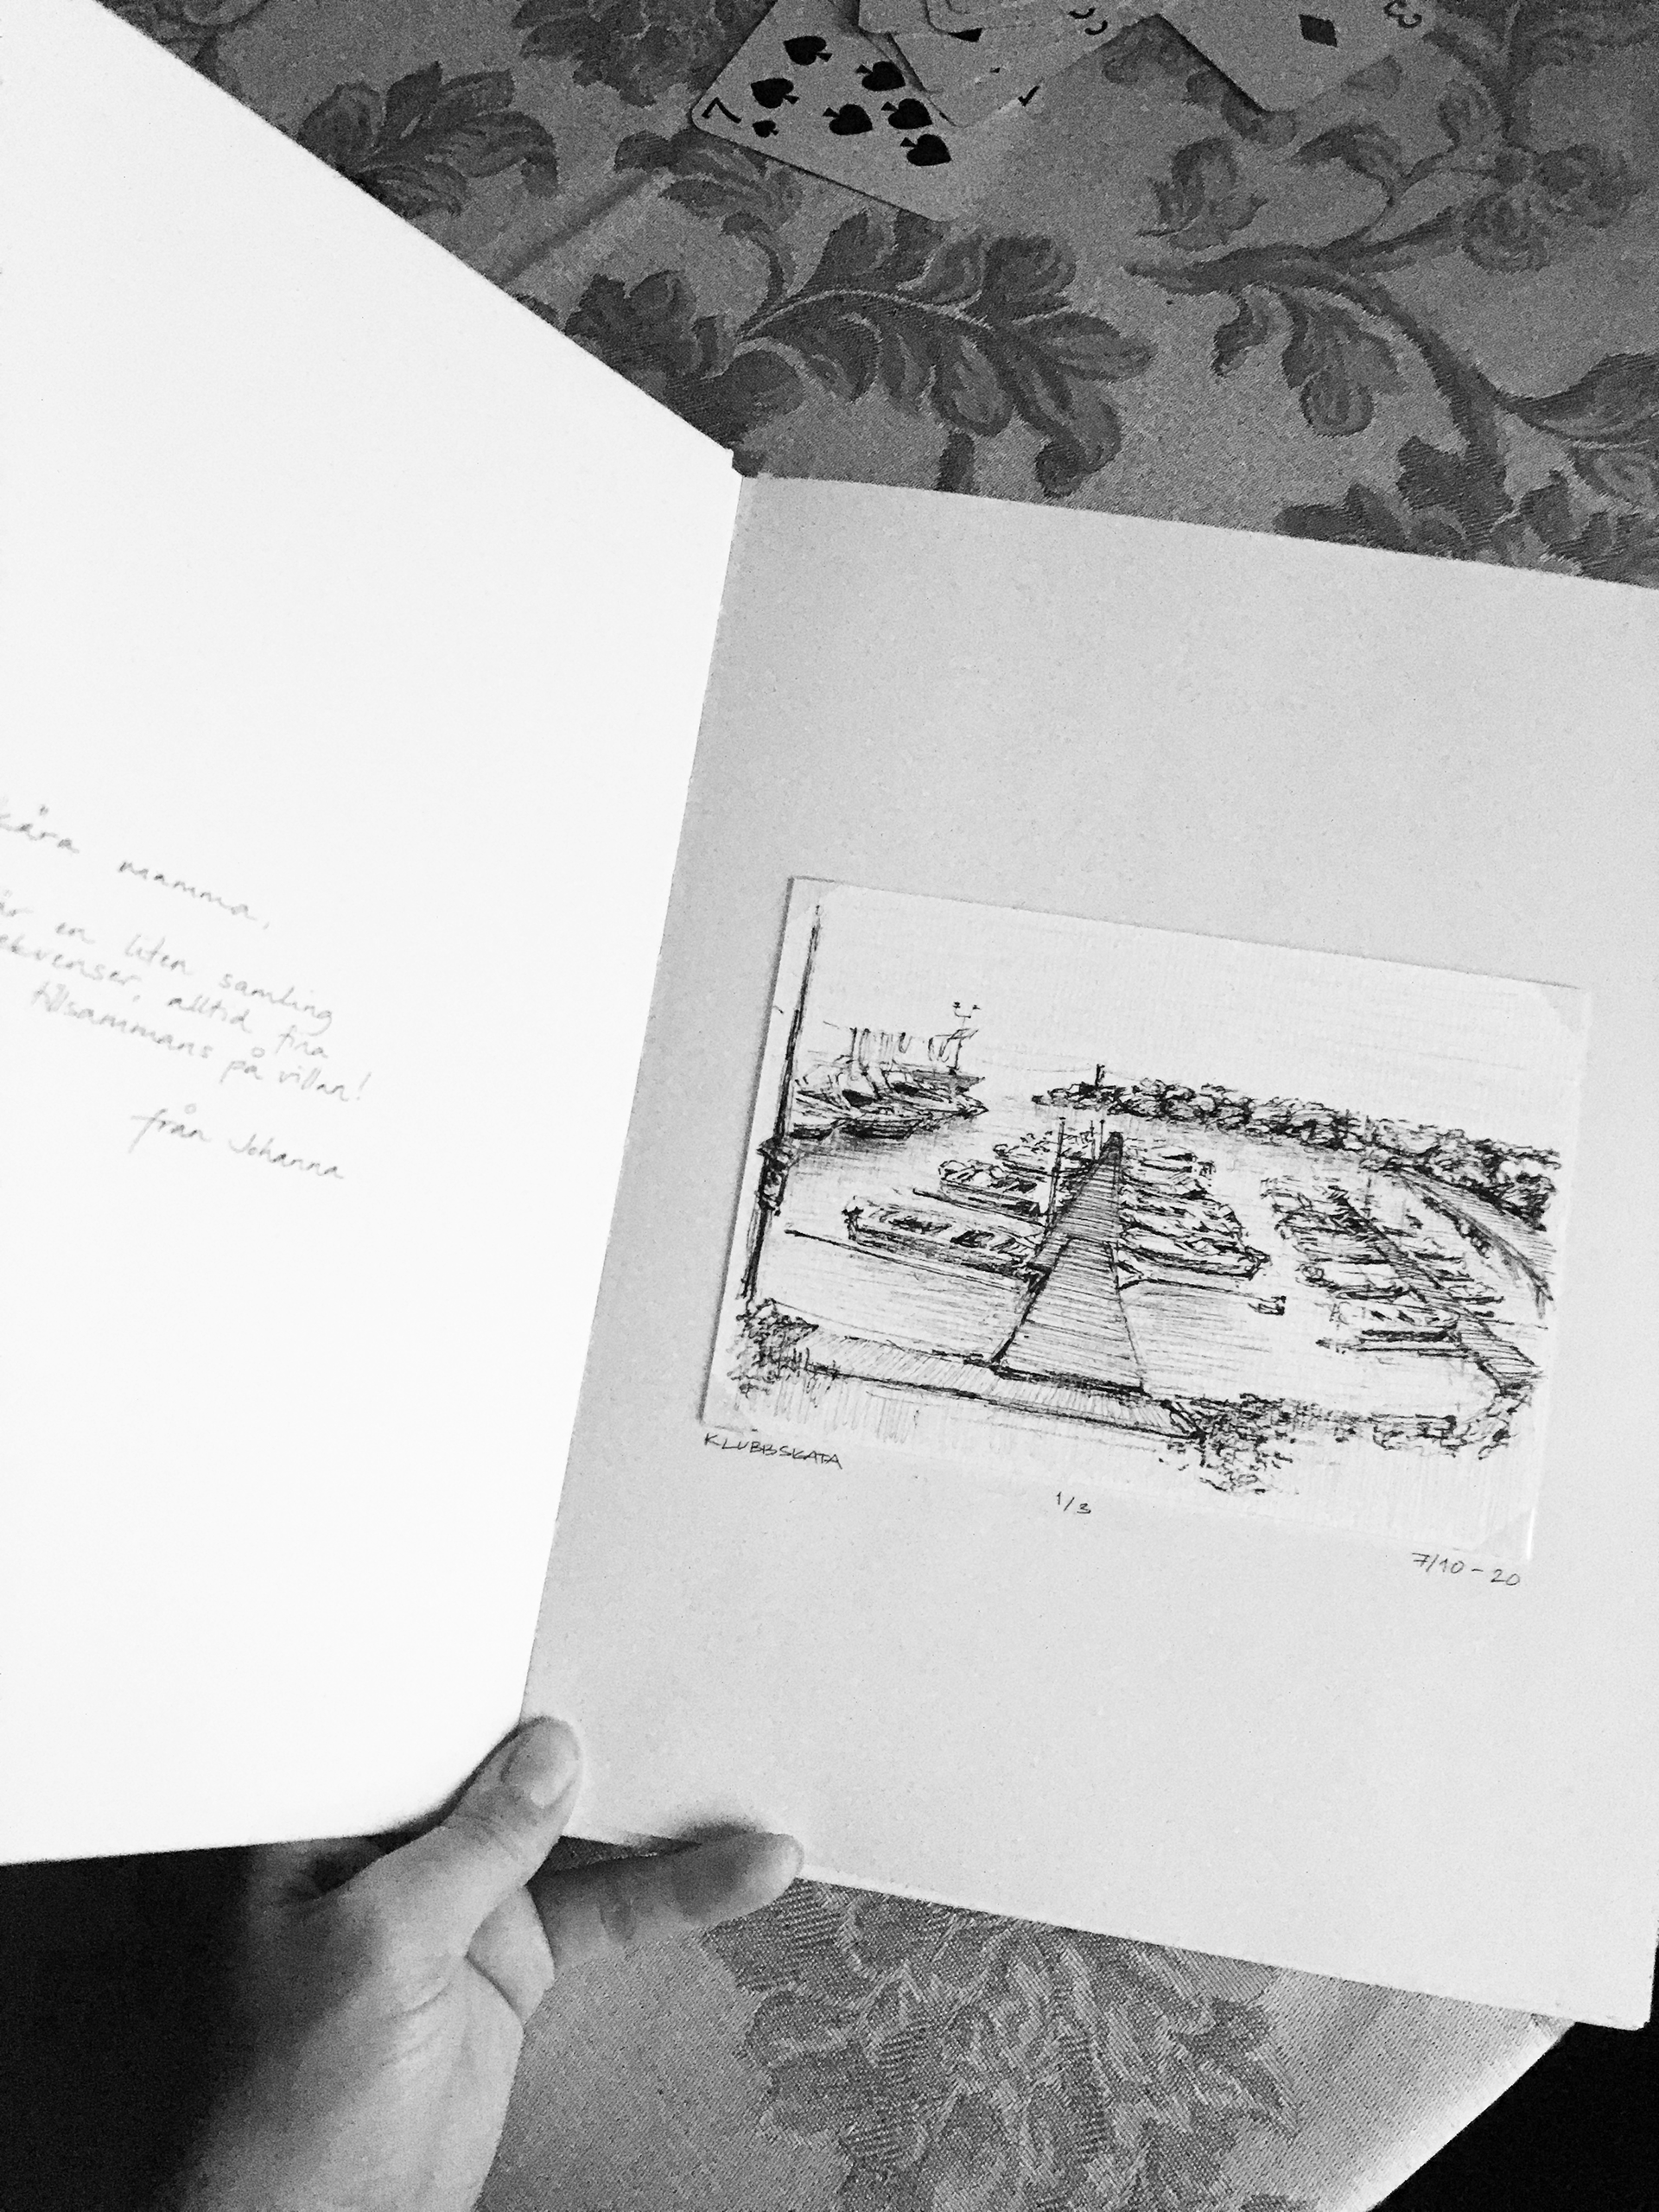 7
3
kära mamma,
är en liten samling
ekvenser, alltid fina
tillsammans på villan!
från Johanna
KLUBBSKATA
1/3
7/10-20